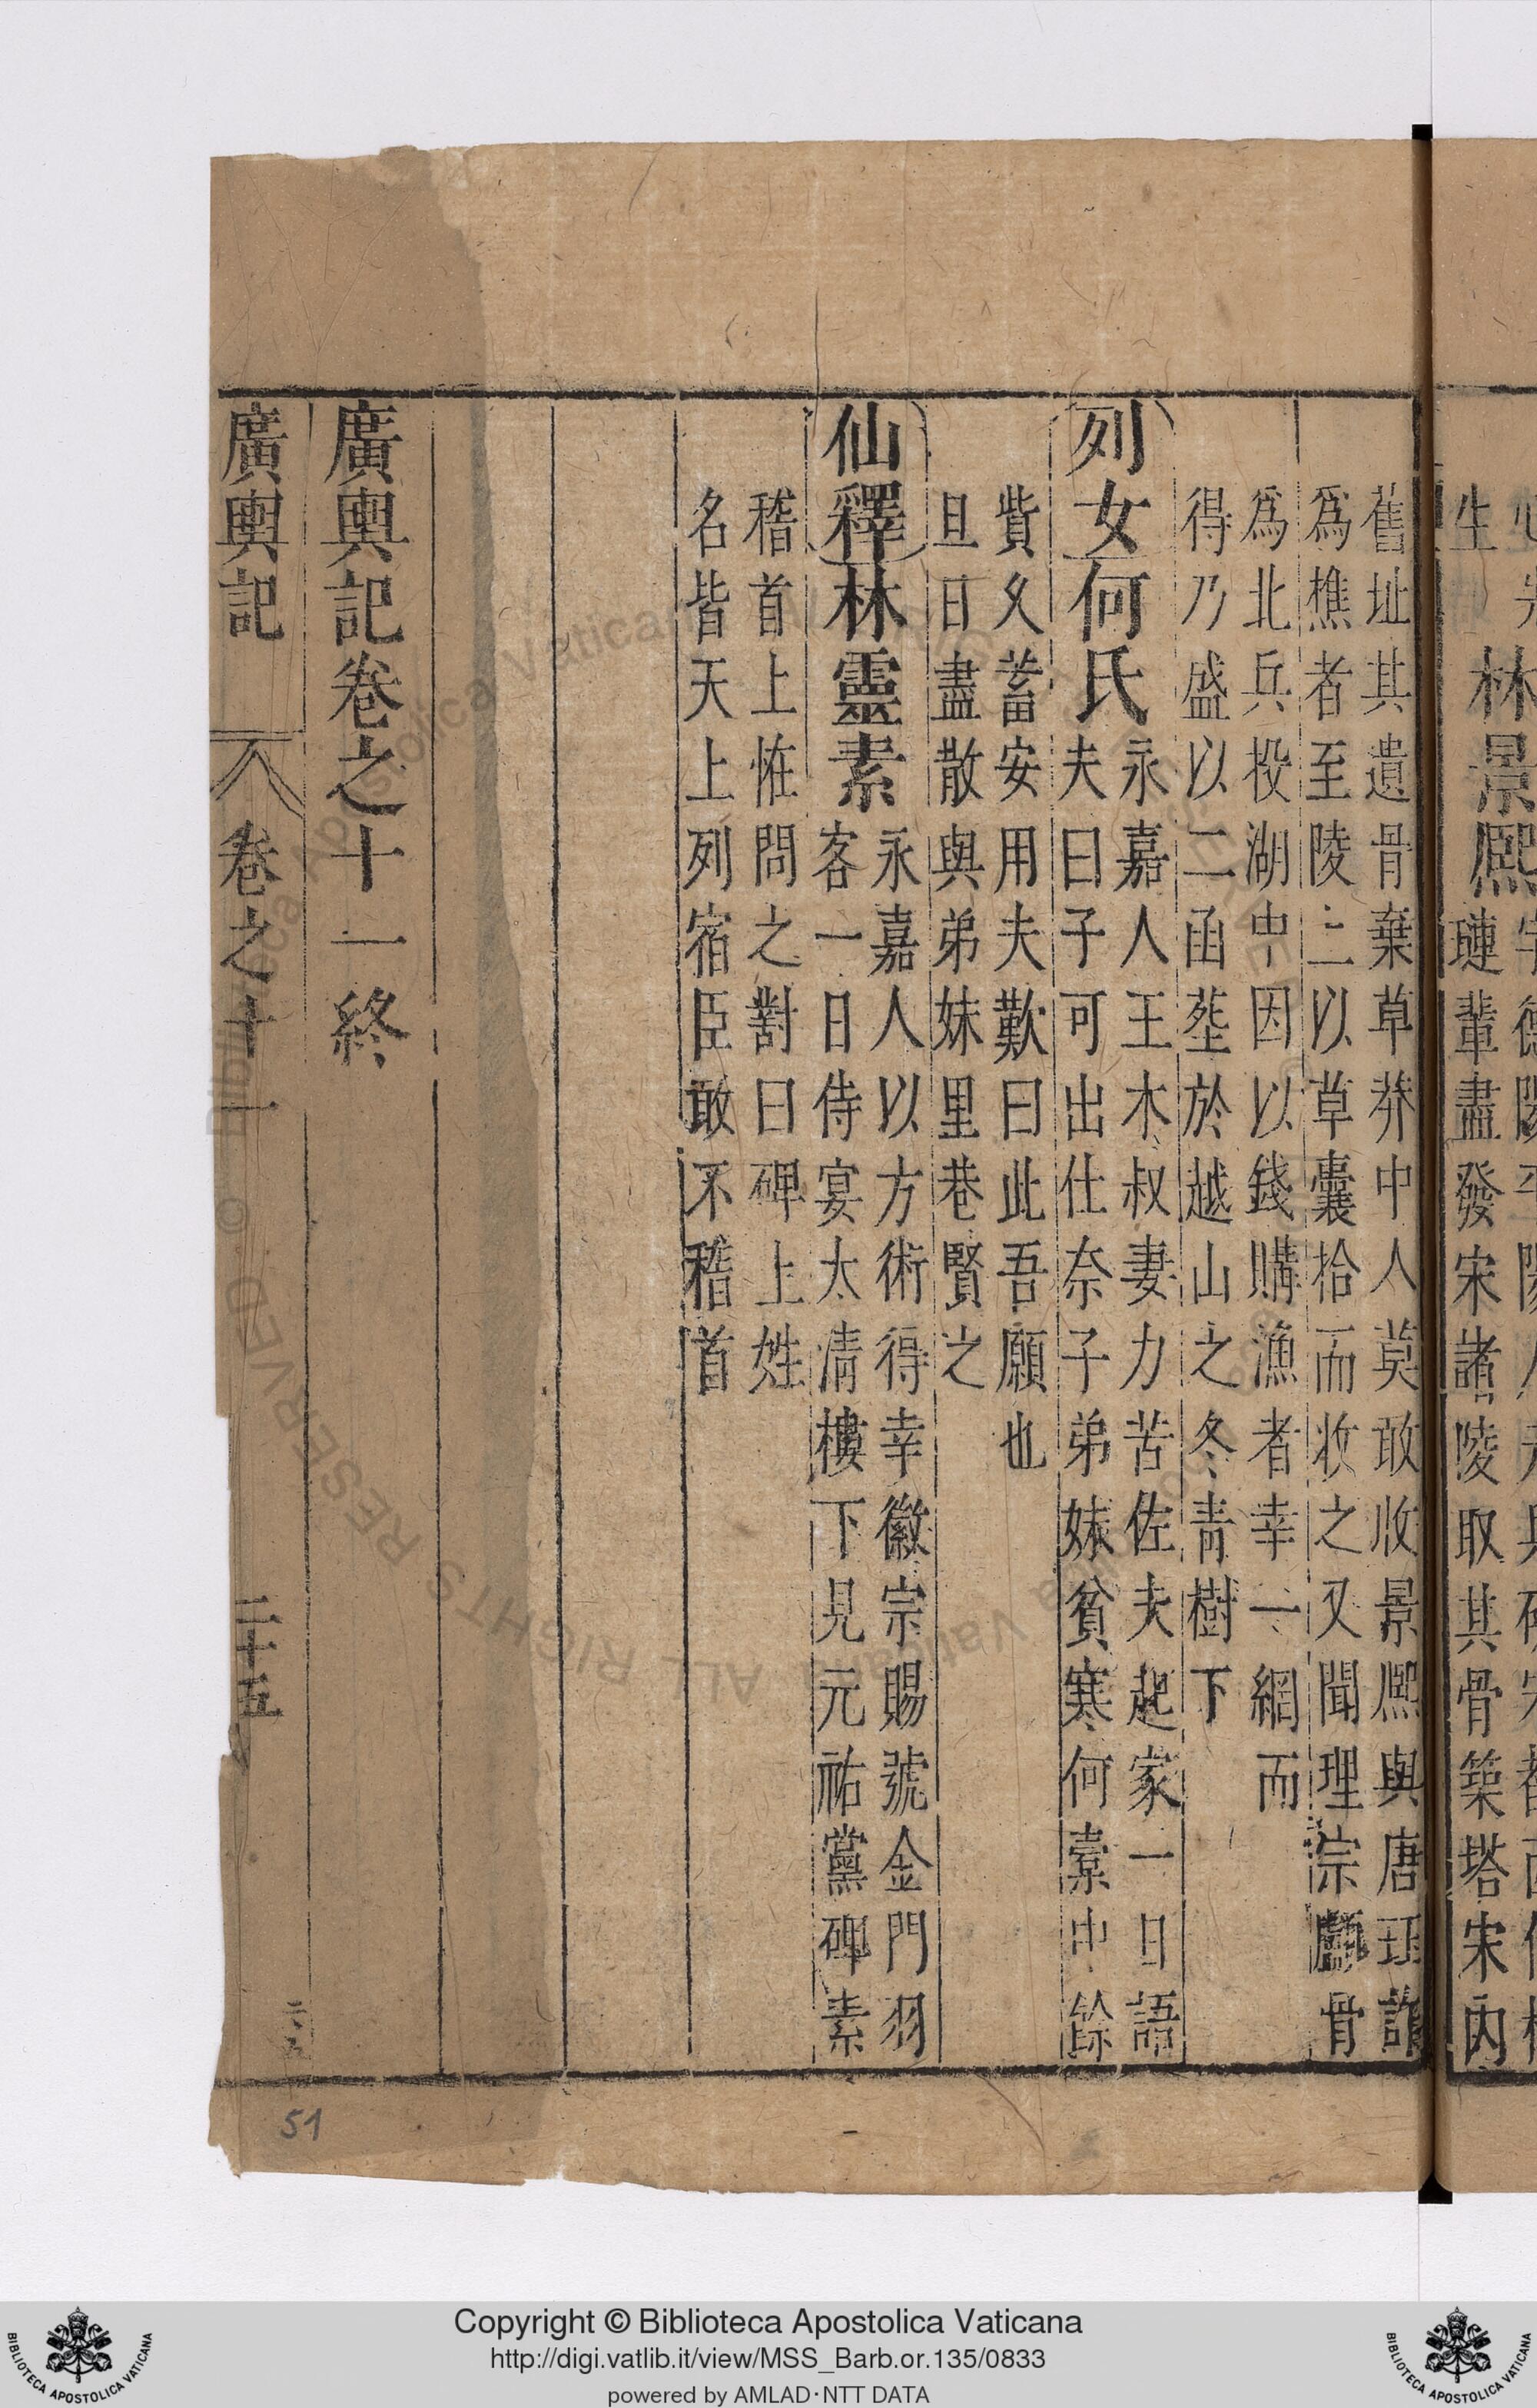 林景熙
生
璉輦盡發宋諸陵取其骨築塔宋內
舊址其遺骨棄草莽中人莫敢收景熙與唐珏詐
爲樵者至陵上以草囊拾而收之又聞理宗顱骨
爲北兵投湖中因以錢購漁者幸一網而
得乃盛以二函塟於越山之冬青樹下
列女何氏
永嘉人王木叔妻力苦佐夫起家一日語
夫曰子可出仕奈子弟妹貧寒何槖中餘
貲久蓄安用夫歎曰此吾願也
旦日盡散與弟妹里巷賢之
仙釋林靈素
永嘉人以方術得幸徽宗賜號金門羽
客一日侍宴太清樓下見元祐黨碑素
稽首上恠問之對曰碑上姓
名皆天上列宿臣敢不稽首
廣輿記卷之十一終
廣輿記 卷之十一 二十五
51
Copyright © Biblioteca Apostolica Vaticana
http://digi.vatlib.it/view/MSS_Barb.or.135/0833
powered by AMLAD·NTT DATA
BIBLIOTECA APOSTOLICA VATICANA
BIBLIOTECA APOSTOLICA VATICANA